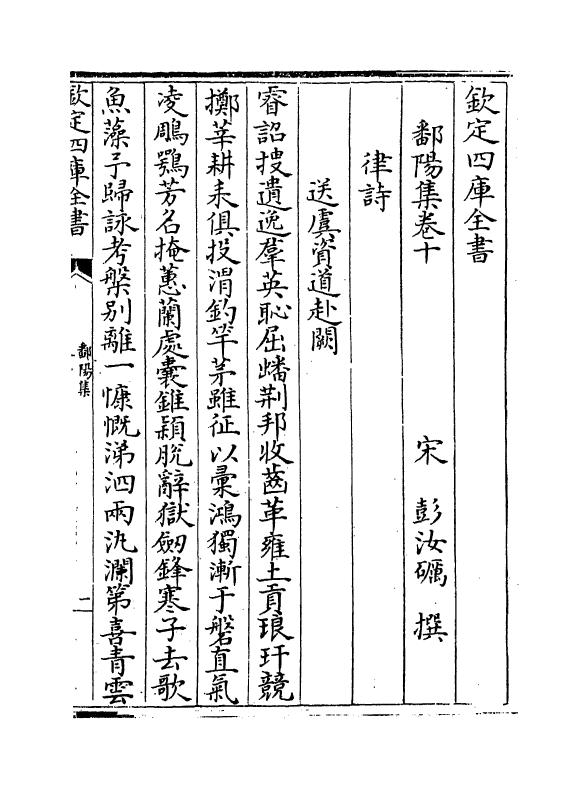 欽定四庫全書
鄱陽集卷十
宋 彭汝礪 撰
律詩
送虞資道赴闕
睿詔捜遺逸羣英恥屈蟠荆邦收齒革雍土貢琅玕競
擲莘耕耒俱投渭釣竿茅雖征以彚鴻獨漸于磐直氣
凌鵰鶚芳名掩蕙蘭處囊錐頴脱辭獄劒鋒寒子去歌
魚藻予歸詠考槃别離一慷慨涕泗兩汍瀾第喜青雲
欽定四庫全書
鄱陽集